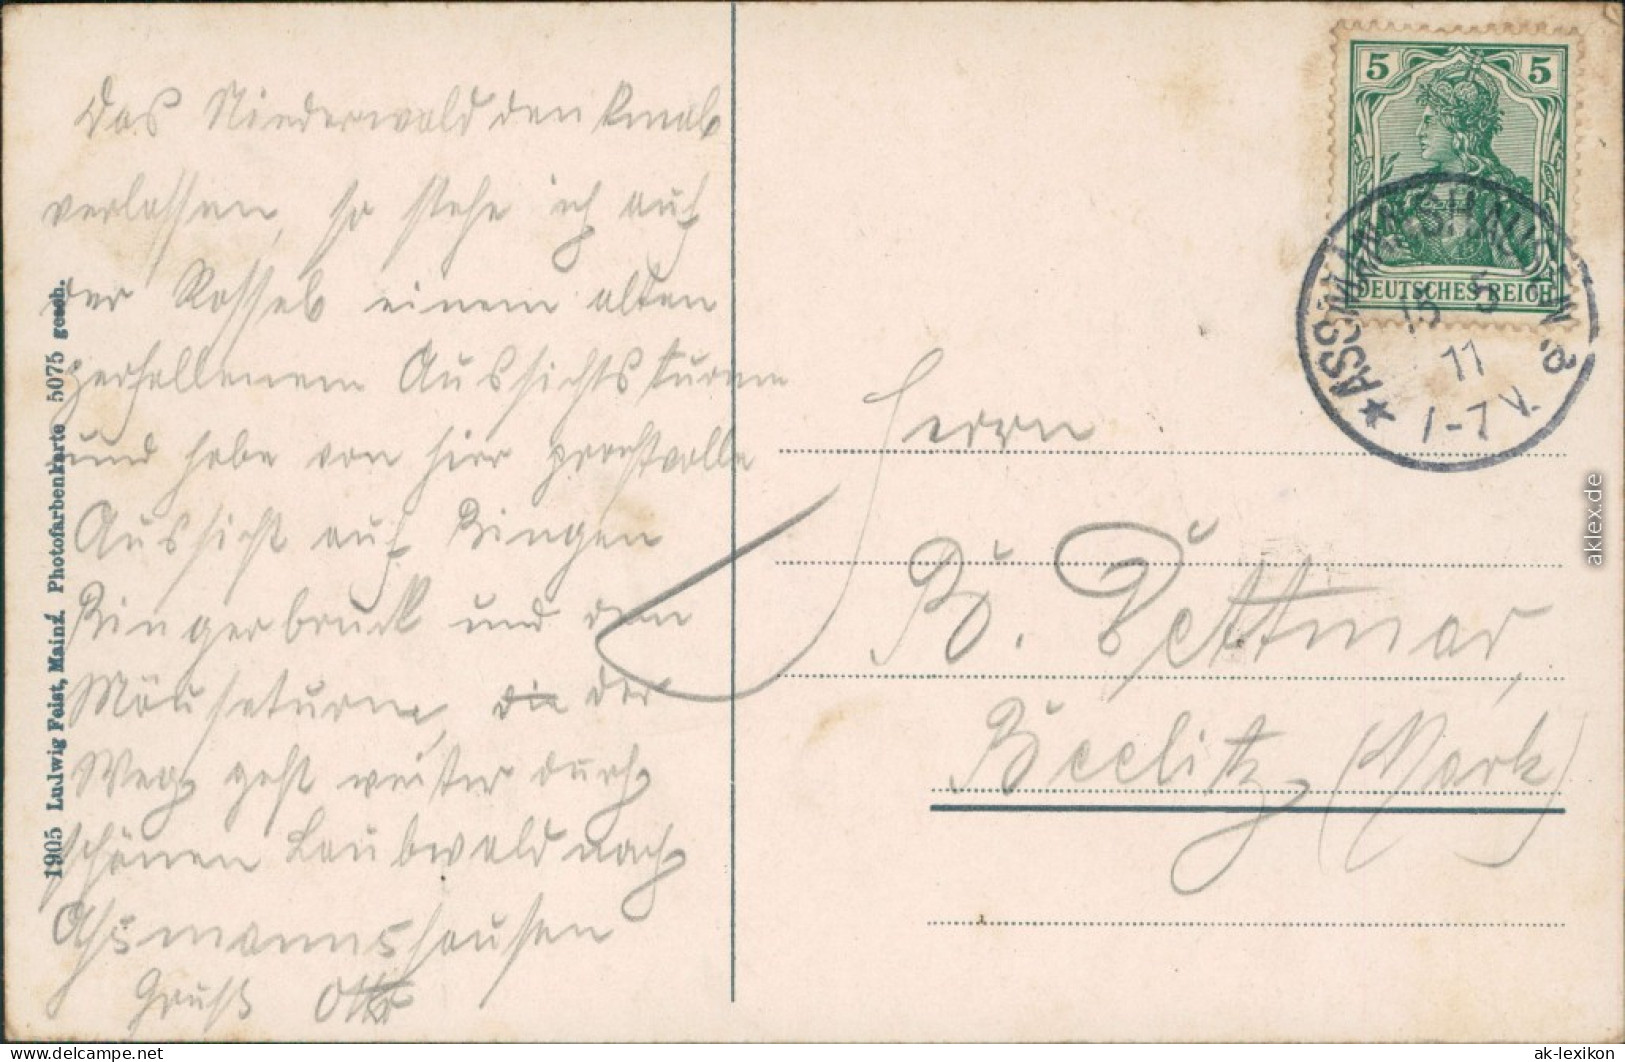 Das Niederwalddenkmal
verlassen, so stehe ich auf
der Rossel einem alten
zerfallenem Aussichtsturme
und habe von hier prachtvolle
Aussicht auf Bingen
Bingerbrück und den
Mäuseturm, die der
Weg geht weiter durch
schönen Laubwald nach
Assmannshausen
Gruß Otto
1905 Ludwig Feist, Mainz. Photofarbenkarte 5075 gesch.
5 5
DEUTSCHES REICH
ASSMANNSHAUSEN
15 5
11
1-7 V.
Herrn
B. Dettmar,
Beelitz (Mark)
aklex.de
delcampe.net
ak-lexikon